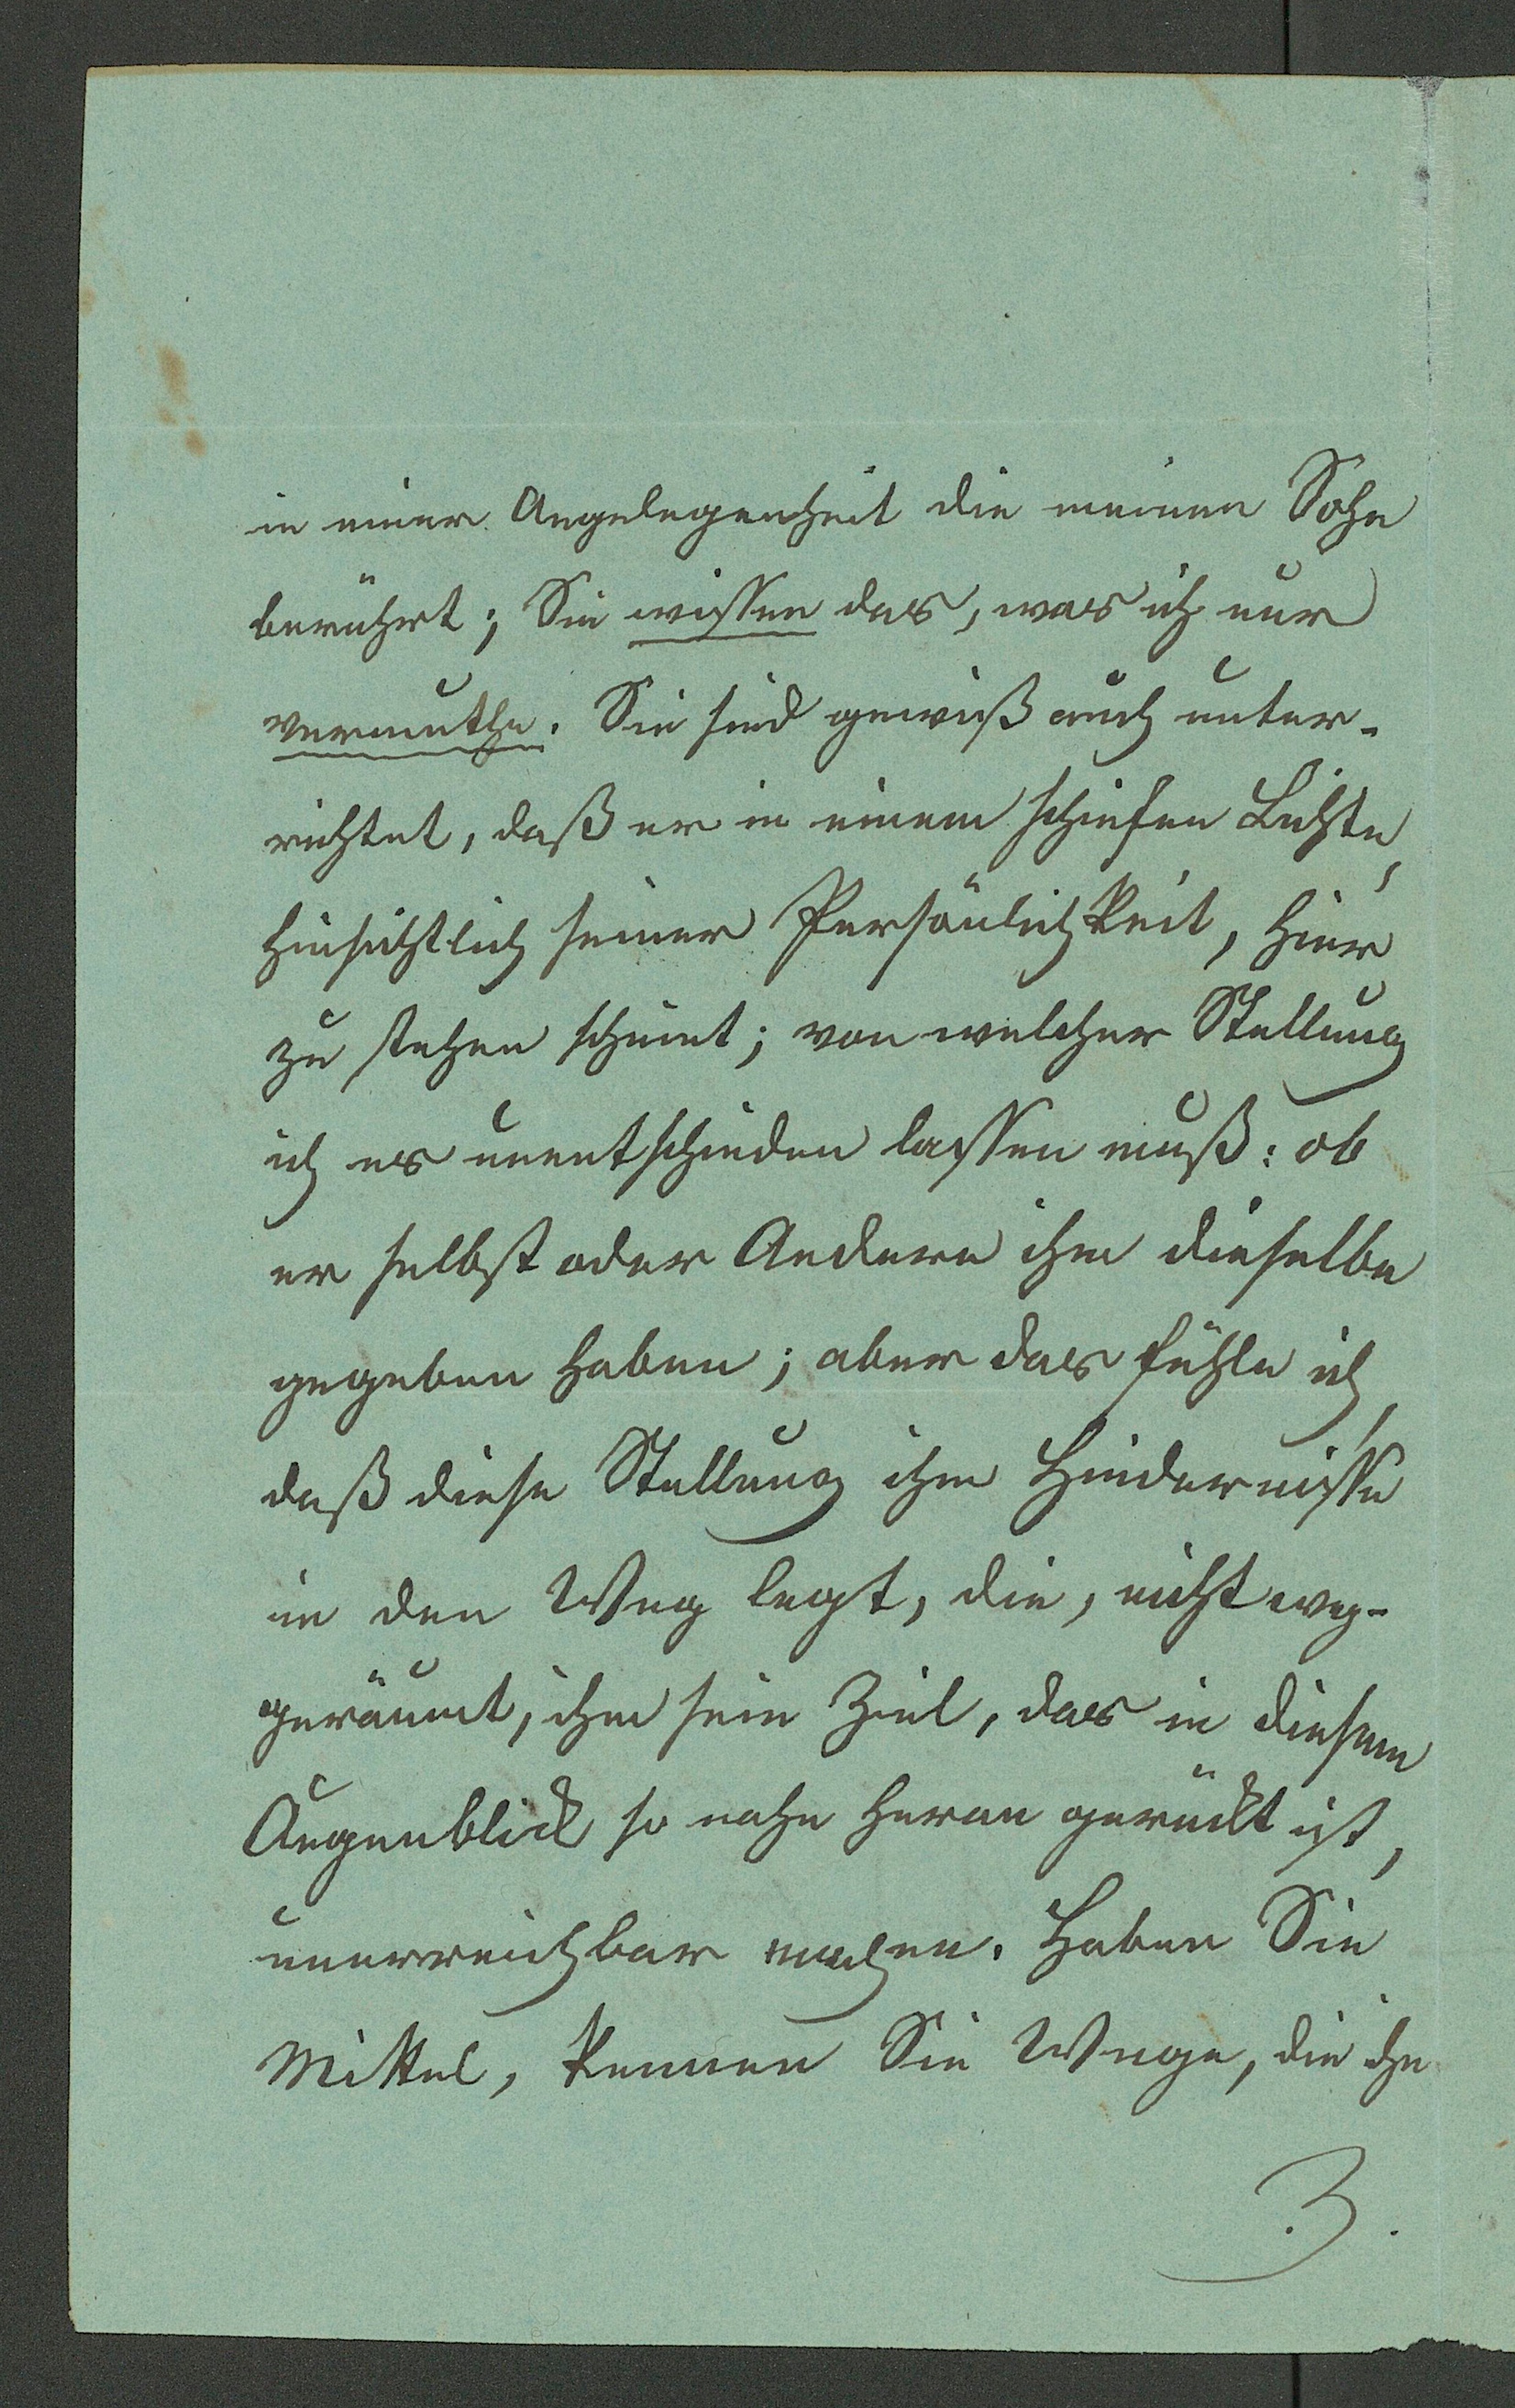 in einer Angelegenheit die meinen Sohn
berührt; Sie wissen das, was ich nur
vermuthe. Sie sind gewiß auch unter-
richtet, daß er in einem schiefen Lichte,
hinsichtlich seiner Persönlichkeit, hier
zu stehen scheint; von welcher Stellung
ich es unentschieden lassen muß: ob
er selbst oder Andere ihm dieselbe
gegeben haben; aber das fühle ich,
daß diese Stellung ihm Hindernisse
in den Weg legt, die, nicht weg-
geräumt, ihm sein Ziel, das in diesem
Augenblick so nahe heran gerückt ist,
unerreichbar machen. Haben Sie
Mittel, kennen Sie Wege, die ihn